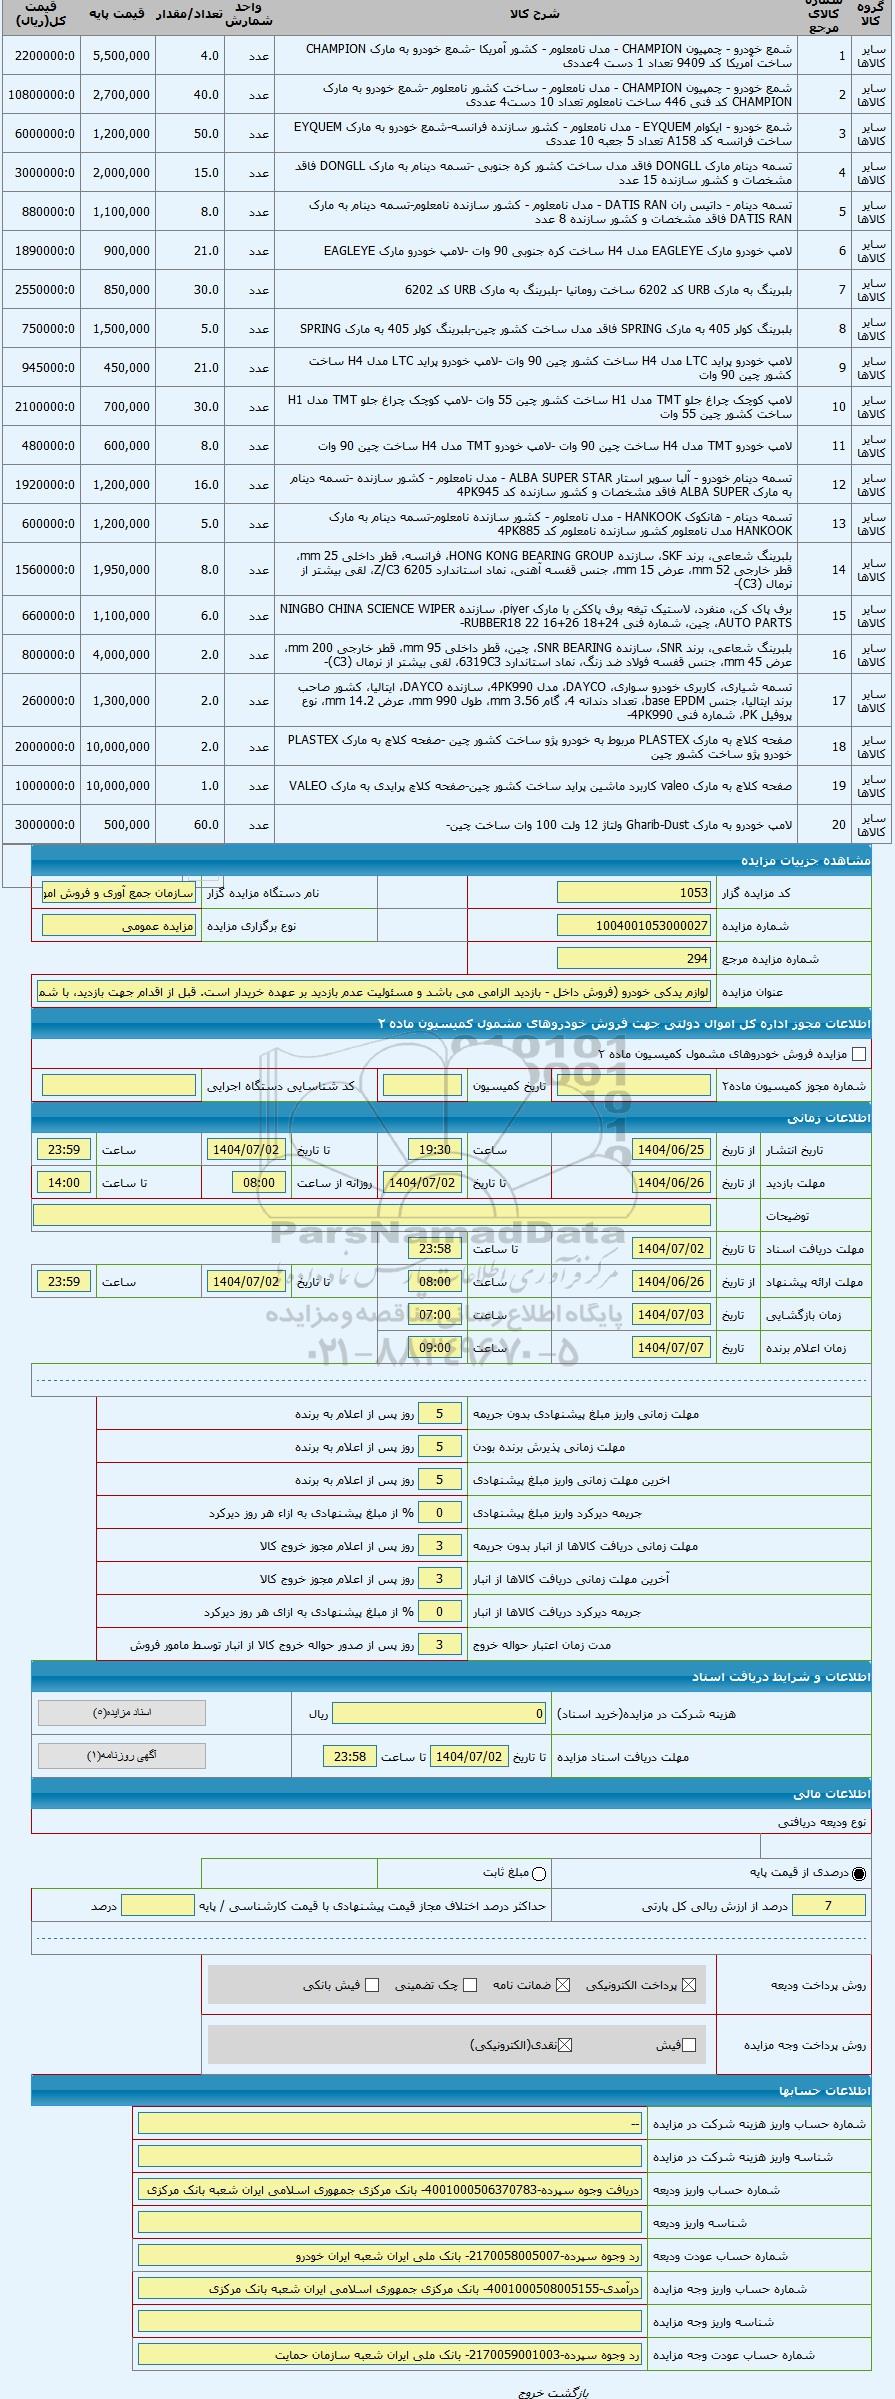 گروه کالا	شماره کالای مرجع	شرح کالا	واحد شمارش	تعداد/مقدار	قیمت پایه	قیمت کل(ریال)
سایر کالاها	1	شمع خودرو - چمپیون CHAMPION - مدل نامعلوم - کشور آمریکا -شمع خودرو به مارک CHAMPION ساخت آمریکا کد 9409 تعداد 1 دست 4عددی	عدد	4.0	5,500,000	2200000:0
سایر کالاها	2	شمع خودرو - چمپیون CHAMPION - مدل نامعلوم - ساخت کشور نامعلوم -شمع خودرو به مارک CHAMPION کد فنی 446 ساخت نامعلوم تعداد 10 دست4 عددی	عدد	40.0	2,700,000	10800000:0
سایر کالاها	3	شمع خودرو - ایکوام EYQUEM - مدل نامعلوم - کشور سازنده فرانسه-شمع خودرو به مارک EYQUEM ساخت فرانسه کد A158 تعداد 5 جعبه 10 عددی	عدد	50.0	1,200,000	6000000:0
سایر کالاها	4	تسمه دینام مارک DONGLL فاقد مدل ساخت کشور کره جنوبی -تسمه دینام به مارک DONGLL فاقد مشخصات و کشور سازنده 15 عدد	عدد	15.0	2,000,000	3000000:0
سایر کالاها	5	تسمه دینام - داتیس ران DATIS RAN - مدل نامعلوم - کشور سازنده نامعلوم-تسمه دینام به مارک DATIS RAN فاقد مشخصات و کشور سازنده 8 عدد	عدد	8.0	1,100,000	880000:0
سایر کالاها	6	لامپ خودرو مارک EAGLEYE مدل H4 ساخت کره جنوبی 90 وات -لامپ خودرو مارک EAGLEYE	عدد	21.0	900,000	1890000:0
سایر کالاها	7	بلبرینگ به مارک URB کد 6202 ساخت رومانیا -بلبرینگ به مارک URB کد 6202	عدد	30.0	850,000	2550000:0
سایر کالاها	8	بلبرینگ کولر 405 به مارک SPRING فاقد مدل ساخت کشور چین-بلبرینگ کولر 405 به مارک SPRING	عدد	5.0	1,500,000	750000:0
سایر کالاها	9	لامپ خودرو پراید LTC مدل H4 ساخت کشور چین 90 وات -لامپ خودرو پراید LTC مدل H4 ساخت کشور چین 90 وات	عدد	21.0	450,000	945000:0
سایر کالاها	10	لامپ کوچک چراغ جلو TMT مدل H1 ساخت کشور چین 55 وات -لامپ کوچک چراغ جلو TMT مدل H1 ساخت کشور چین 55 وات	عدد	30.0	700,000	2100000:0
سایر کالاها	11	لامپ خودرو TMT مدل H4 ساخت چین 90 وات -لامپ خودرو TMT مدل H4 ساخت چین 90 وات	عدد	8.0	600,000	480000:0
سایر کالاها	12	تسمه دینام خودرو - آلبا سوپر استار ALBA SUPER STAR - مدل نامعلوم - کشور سازنده -تسمه دینام به مارک ALBA SUPER فاقد مشخصات و کشور سازنده کد 4PK945	عدد	16.0	1,200,000	1920000:0
سایر کالاها	13	تسمه دینام - هانکوک HANKOOK - مدل نامعلوم - کشور سازنده نامعلوم-تسمه دینام به مارک HANKOOK مدل نامعلوم کشور سازنده نامعلوم کد 4PK885	عدد	5.0	1,200,000	600000:0
سایر کالاها	14	بلبرینگ شعاعی، برند SKF، سازنده HONG KONG BEARING GROUP، فرانسه، قطر داخلی 25 mm، قطر خارجی 52 mm، عرض 15 mm، جنس قفسه آهنی، نماد استاندارد 6205 Z/C3، لقی بیشتر از نرمال (C3)-	عدد	8.0	1,950,000	1560000:0
سایر کالاها	15	برف پاک کن، منفرد، لاستیک تیغه برف پاککن با مارک piyer، سازنده NINGBO CHINA SCIENCE WIPER AUTO PARTS، چین، شماره فنی RUBBER18 22 16+26 18+24-	عدد	6.0	1,100,000	660000:0
سایر کالاها	16	بلبرینگ شعاعی، برند SNR، سازنده SNR BEARING، چین، قطر داخلی 95 mm، قطر خارجی 200 mm، عرض 45 mm، جنس قفسه فولاد ضد زنگ، نماد استاندارد 6319C3، لقی بیشتر از نرمال (C3)-	عدد	2.0	4,000,000	800000:0
سایر کالاها	17	تسمه شیاری، کاربری خودرو سواری، DAYCO، مدل 4PK990، سازنده DAYCO، ایتالیا، کشور صاحب برند ایتالیا، جنس base EPDM، تعداد دندانه 4، گام 3.56 mm، طول 990 mm، عرض 14.2 mm، نوع پروفیل PK، شماره فنی 4PK990-	عدد	2.0	1,300,000	260000:0
سایر کالاها	18	صفحه کلاچ به مارک PLASTEX مربوط به خودرو پژو ساخت کشور چین -صفحه کلاچ به مارک PLASTEX خودرو پژو ساخت کشور چین	عدد	2.0	10,000,000	2000000:0
سایر کالاها	19	صفحه کلاچ به مارک valeo کاربرد ماشین پراید ساخت کشور چین-صفحه کلاچ پرایدی به مارک VALEO	عدد	1.0	10,000,000	1000000:0
سایر کالاها	20	لامپ خودرو به مارک Gharib-Dust ولتاژ 12 ولت 100 وات ساخت چین-	عدد	60.0	500,000	3000000:0
مشاهده جزییات مزایده
کد مزایده گزار	1053	نام دستگاه مزایده گزار	سازمان جمع آوری و فروش امو
شماره مزایده	1004001053000027	نوع برگزاری مزایده	مزایده عمومی
شماره مزایده مرجع	294
عنوان مزایده	لوازم یدکی خودرو (فروش داخل - بازدید الزامی می باشد و مسئولیت عدم بازدید بر عهده خریدار است. قبل از اقدام جهت بازدید، با شم
اطلاعات مجوز اداره کل اموال دولتی جهت فروش خودروهای مشمول کمیسیون ماده ۲
مزایده فروش خودروهای مشمول کمیسیون ماده ۲
شماره مجوز کمیسیون ماده۲	تاریخ کمیسیون	کد شناسایی دستگاه اجرایی
اطلاعات زمانی
تاریخ انتشار	از تاریخ	1404/06/25	ساعت	19:30	تا تاریخ	1404/07/02	ساعت	23:59
مهلت بازدید	از تاریخ	1404/06/26	تا تاریخ	1404/07/02	روزانه از ساعت	08:00	تا ساعت	14:00
توضیحات
ParsNamadData
مهلت دریافت اسناد	تا تاریخ	1404/07/02	تا ساعت	23:58
مرکز فرآوری اطلاعات پارس نماد داده ها
مهلت ارائه پیشنهاد	از تاریخ	1404/06/26	ساعت	08:00	تا تاریخ	1404/07/02	ساعت	23:59
زمان بازگشایی	تاریخ	1404/07/03	ساعت	07:00
پایگاه اطلاع رسانی مناقصه و مزایده
زمان اعلام برنده	تاریخ	1404/07/07	ساعت	09:00
۰۲۱-۸۸۳۴۹۶۷۰-۵
مهلت زمانی واریز مبلغ پیشنهادی بدون جریمه	5	روز پس از اعلام به برنده
مهلت زمانی پذیرش برنده بودن	5	روز پس از اعلام به برنده
اخرین مهلت زمانی واریز مبلغ پیشنهادی	5	روز پس از اعلام به برنده
جریمه دیرکرد واریز مبلغ پیشنهادی	0	% از مبلغ پیشنهادی به ازاء هر روز دیرکرد
مهلت زمانی دریافت کالاها از انبار بدون جریمه	3	روز پس از اعلام مجوز خروج کالا
آخرین مهلت زمانی دریافت کالاها از انبار	3	روز پس از اعلام مجوز خروج کالا
جریمه دیرکرد دریافت کالاها از انبار	0	% از مبلغ پیشنهادی به ازای هر روز دیرکرد
مدت زمان اعتبار حواله خروج	3	روز پس از صدور حواله خروج کالا از انبار توسط مامور فروش
اطلاعات و شرایط دریافت اسناد
هزینه شرکت در مزایده(خرید اسناد)	0	ریال	اسناد مزایده(۵)
مهلت دریافت اسناد مزایده	تا تاریخ	1404/07/02	تا ساعت	23:58	آگهی روزنامه(۱)
اطلاعات مالی
نوع ودیعه دریافتی
درصدی از قیمت پایه	مبلغ ثابت
7	درصد از ارزش ریالی کل پارتی	حداکثر درصد اختلاف مجاز قیمت پیشنهادی با قیمت کارشناسی / پایه	درصد
روش پرداخت ودیعه	پرداخت الکترونیکی	ضمانت نامه	چک تضمینی	فیش بانکی
روش پرداخت وجه مزایده	فیش	نقدی(الکترونیکی)
اطلاعات حسابها
شماره حساب واریز هزینه شرکت در مزایده	--
شناسه واریز هزینه شرکت در مزایده
شماره حساب واریز ودیعه	دریافت وجوه سپرده-4001000506370783- بانک مرکزی جمهوری اسلامی ایران شعبه بانک مرکزی
شناسه واریز ودیعه
شماره حساب عودت ودیعه	رد وجوه سپرده-2170058005007- بانک ملی ایران شعبه ایران خودرو
شماره حساب واریز وجه مزایده	درآمدی-4001000508005155- بانک مرکزی جمهوری اسلامی ایران شعبه بانک مرکزی
شناسه واریز وجه مزایده
شماره حساب عودت وجه مزایده	رد وجوه سپرده-2170059001003- بانک ملی ایران شعبه سازمان حمایت
بازگشت خروج